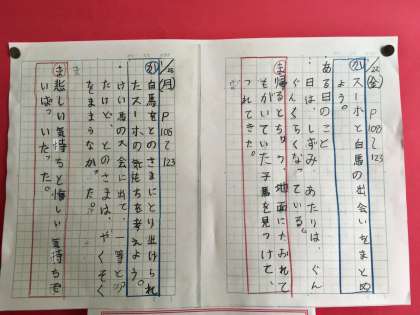 1/22
(金)
P
108
〜
123
か スーホと白馬の出会いをまとめ
よう。
ある日のこと
・日は、しずみ、あたりは、ぐん
ぐんくらくなっている。
ま 帰るとちゅう、地面にたおれて
もがいていた子馬を見つけて、
つれてきた。
(月)
P
108
〜
123
か 白馬をとのさまにとり上げられ
たスーホの気持ちを考えよう。
けい馬の大会に出て、一等と
たけど、とのさまは、やくそく
をまもらなかった。
ま 悲しい気持ちと悔しい気持ちで
いぱっいだった。